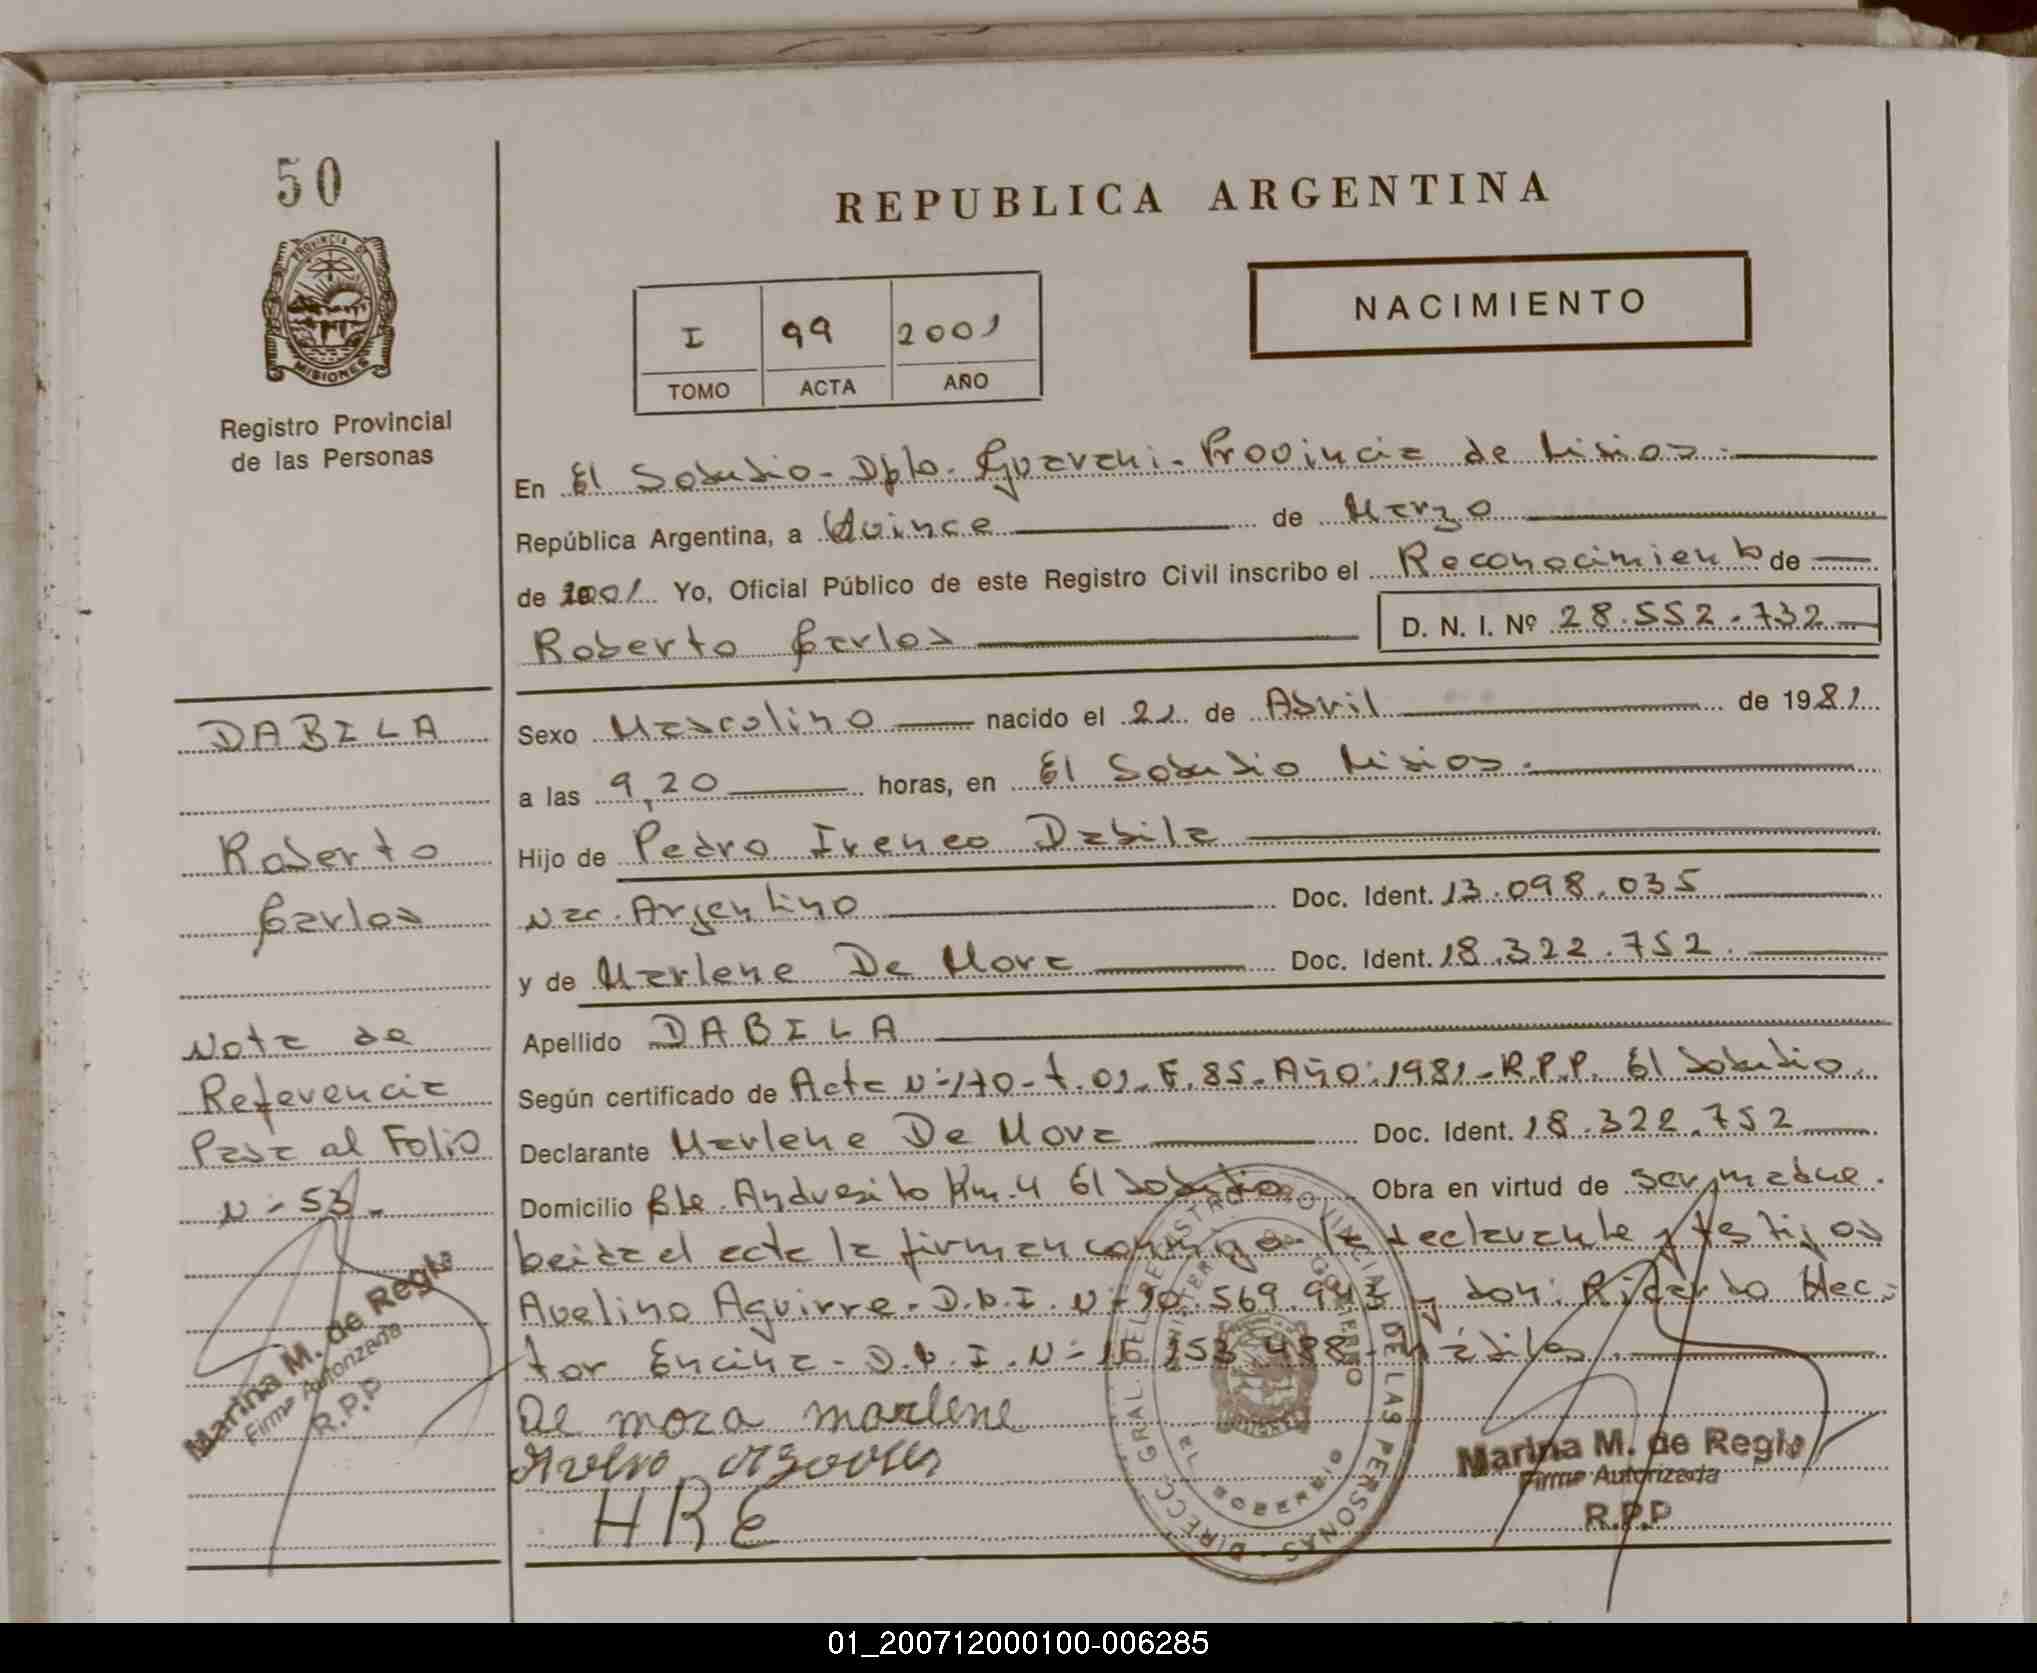 50
REPUBLICA ARGENTINA
PROVINCIA DE
MISIONES
Registro Provincial
de las Personas
I 99 2001
TOMO ACTA AÑO
NACIMIENTO
En El Soberbio - Dpto. Guarani - Provincia de Misios.
República Argentina, a Quince de Marzo
de 2001 Yo, Oficial Público de este Registro Civil inscribo el Reconocimiento de
Roberto Carlos D. N. I. Nº 28.552.732
DABILA
Roberto
Carlos
Nota de
Referencia
Pasa al Folio
N= 53.
Marina M. de Regis
Firma Autorizada
R.P.P
Sexo Masculino nacido el 21 de Abril de 1981
a las 9,20 horas, en El Soberbio Misios.
Hijo de Pedro Ireneo Dabila
Nac. Argentino Doc. Ident. 13.098.035
y de Marlene De Mora Doc. Ident. 18.322.752.
Apellido DABILA
Según certificado de Acta N=170-T.01-F.85-Año:1981-R.P.P. El Soberbio.
Declarante Marlene De Mora Doc. Ident. 18.322.752
Domicilio Andresito Km.4 El Soberbio Obra en virtud de ser madre.
Leida el acta la firman conmigo la declarante y testigos
Avelino Aguirre - D.N.I. N= 10.569.943 y don: Ricardo Hec-
tor Encina - D.N.I. N= 16.153.488 - hábiles.
De mora marlene
HRE
DIRECC. GRAL. DEL REGISTRO PROVINCIAL DE LAS PERSONAS
MINISTERIO DE GOBIERNO
EL SOBERBIO
Marina M. de Regis
Firma Autorizada
R.P.P
01_200712000100-006285